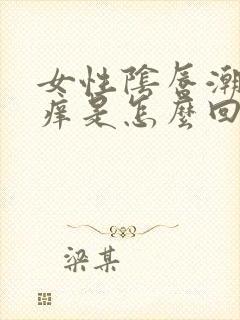 女性陰唇潮
痒是怎麼回
梁某